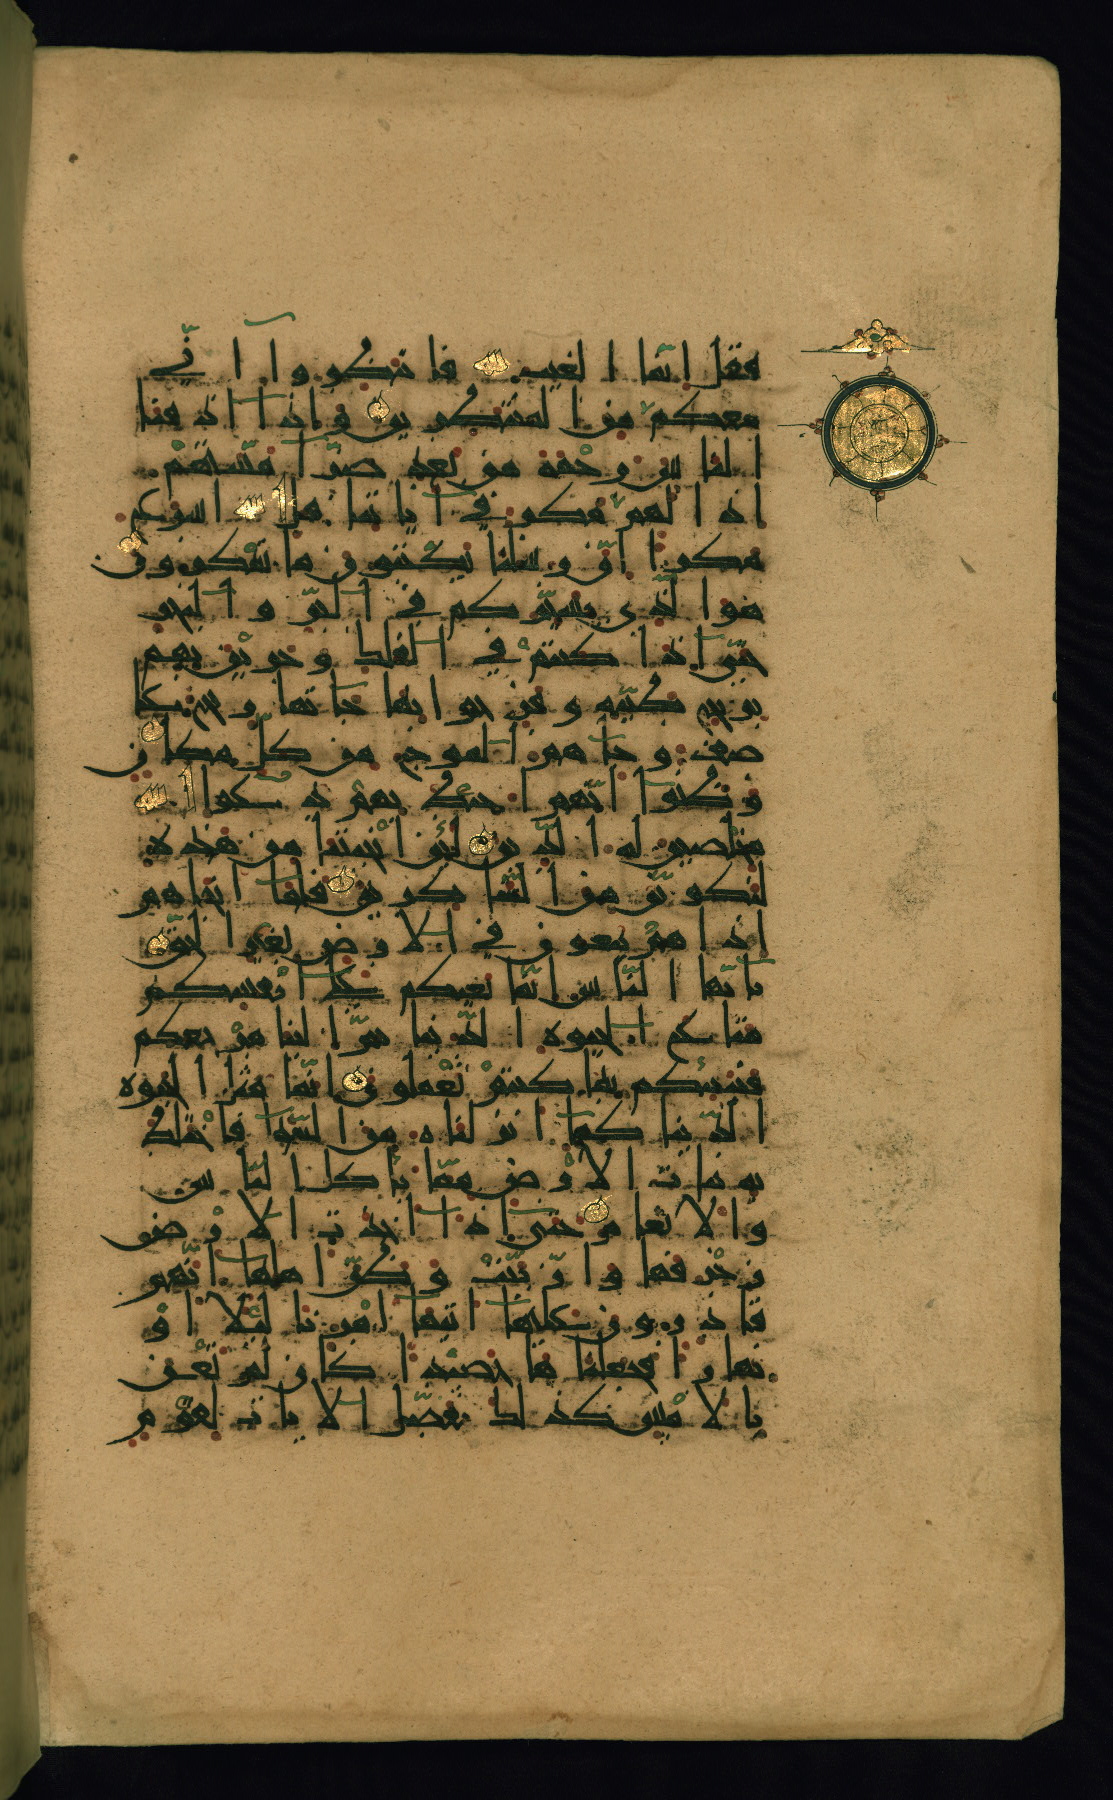 فقل انّما الغيب لله فانتظروا انّي
معكم من المنتظرين واذا اذقنا
الناس رحمة من بعد ضرّا مسّتهم
اذا لهم مكر في اياتنا قل الله اسرع
مكرا انّ رسلنا يكتبون ما تمكرون
هو الّذي يسيّركم في البرّ والبحر
حتّى اذا كنتم في الفلك وجرين بهم
بريح طيّبة وفرحوا بها جاتها ريح عا
صف وجاهم الموج من كلّ مكان
وظنّوا انّهم احيط بهم دعوا الله
مخلصين له الدّين لئن انجيتنا من هذه
لنكوننّ من الشّاكرين فلمّا انجاهم
اذا هم يبغون في الارض بغير الحقّ
يايّها النّاس انّما بغيكم على انفسكم
متاع الحيوة الدّنيا ثمّ الينا مرجعكم
فننبّئكم بما كنتم تعملون انّما مثل الحيوة
الدّنيا كما انزلناه من السّما فاختلط
به نبات الارض ممّا ياكل النّاس
والانعام حتّى اذا اخذت الارض
زخرفها وازّيّنت وظنّ اهلها انّهم
قادرون عليها اتيها امرنا ليلا او
نهارا فجعلناها حصيدا كان لم تغن
بالامس كذلك نفصّل الايات لقوم